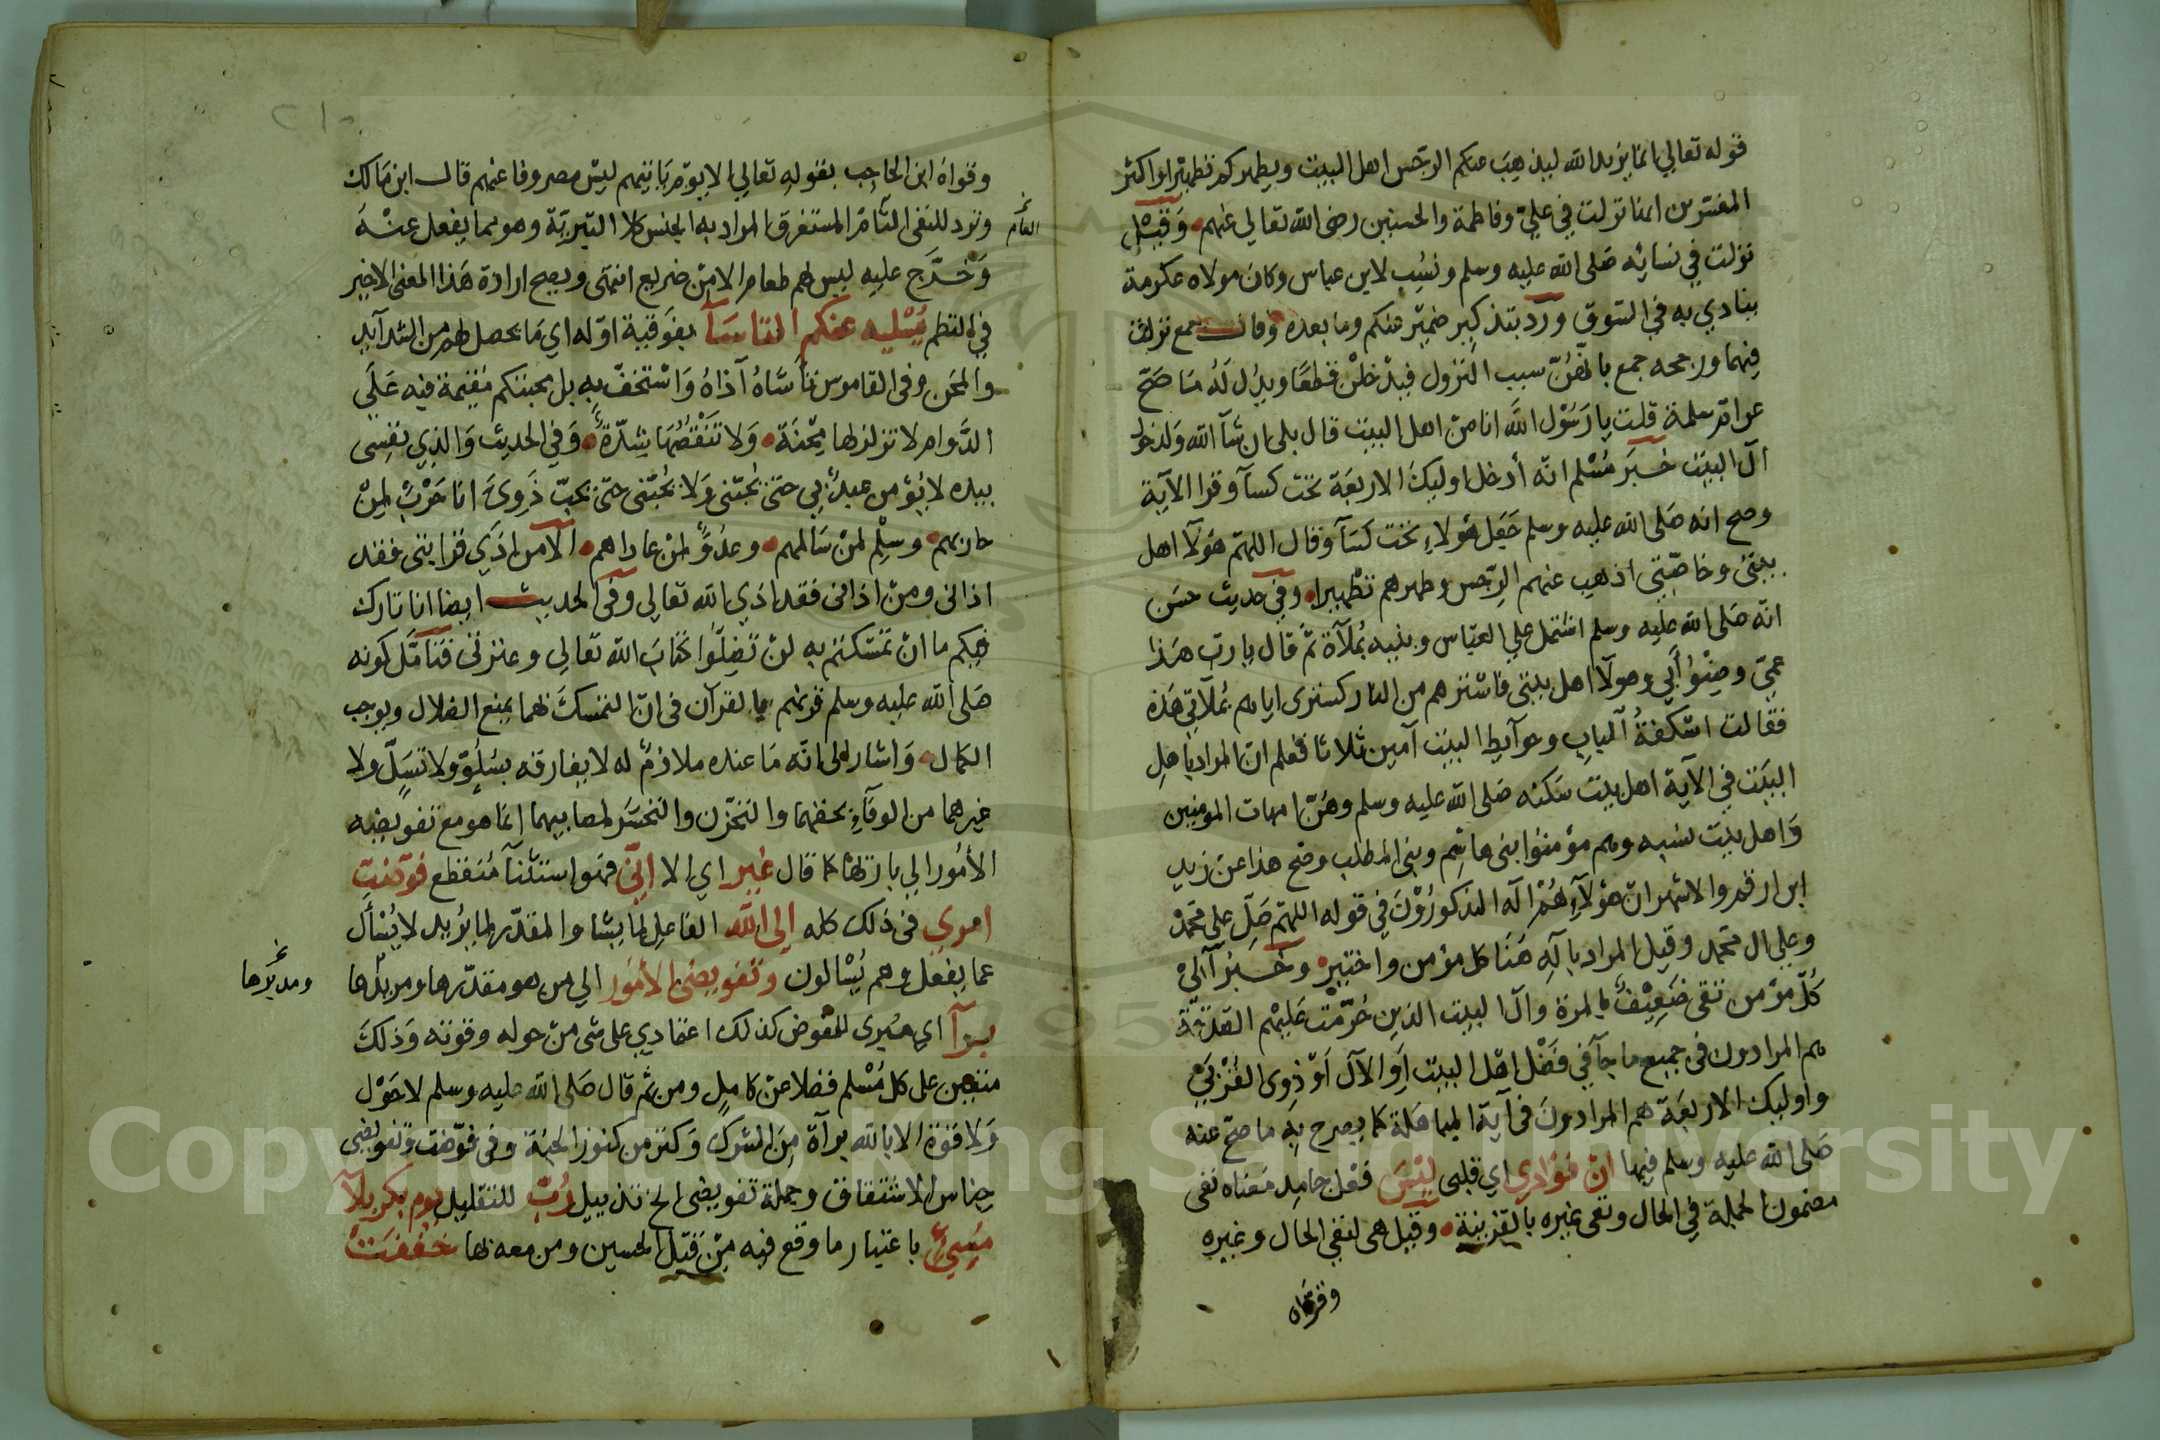 قوله تعالي انما يريد الله ليذهب عنكم الرجس اهل البيت ويطهركم تطهيرا واكثر
المفسرين انها نزلت في علي وفاطمة والحسنين رضي الله تعالي عنهم وقيل
نزلت في نسائه صلى الله عليه وسلم ونسب لابن عباس وكان مولاه عكرمة
ينادي به في السوق ورد بتذكير ضمير عنكم وما بعده وقال جمع نزلت
فيهما ورجحه جمع بانهن سبب النزول فيدخلن قطعا ويدل له ما صح
عن ام سلمة قلت يا رسول الله انا من اهل البيت قال بلى ان شآ الله ولدخول
آل البيت خبر مسلم انه أدخل اوليك الاربعة تحت كسآ وقرا الآية
وصح انه صلى الله عليه وسلم جعل هولاء تحت كسآ وقال اللهم هولآ اهل
بيتي وخاصتي اذهب عنهم الرجس وطهرهم تطهيرا وفي حديث حسن
انه صلى الله عليه وسلم اشتمل علي العباس وبنيه بملآة ثم قال يا رب هذا
عمي وصنو أبي وهولآ اهل بيتي فاسترهم من النار كستري اياهم بملآتي هذه
فقالت اسكفة الباب وحوآيط البيت آمين ثلاثا فعلم ان المراد باهل
البيت في الآية اهل بيت سكنه صلى الله عليه وسلم وهن امهات المومنين
واهل بيت نسبه وهم مؤمنوا بني هاشم وبني المطلب وصح هذا عن زيد
ابن ارقم والاشهر ان هؤلآء هم اله المذكورون في قوله اللهم صل على محمد
وعلي ال محمد وقيل المراد بآله هنا كل مؤمن واختير وخبر آلي
كل مؤمن تقي ضعيف بالمرة وآل البيت الذين حرمت عليهم الصدقة
هم المرادون في جميع ما جآ في فضل اهل البيت او الآل او ذوي القربي
واوليك الاربعة هم المرادون في آية المباهلة كما يصرح به ما صح عنه
صلى الله عليه وسلم فيها ان فؤادي اي قلبي ليس فعل جامد معناه نفي
مضمون الجملة في الحال ونفى غيره بالقرينة وقيل هي لنفي الحال وغيره
وقواه
وقواه ابن الحاجب بقوله تعالي الا يوم ياتيهم ليس مصروفا عنهم قال ابن مالك
وترد للنفي التام المستغرق المراد به الجنس كلا التبرية وهو مما يغفل عنه
العام
وخرج عليه ليس لهم طعام الا من ضريع انتهى ويصح ارادة هذا المعنى الاخير
في النظم يسليه عنكم التاسآ بفوقية اوله اي ما يحصل لهم من الشدآيد
والمحن وفي القاموس تأساه آذاه واستخف به بل محبتكم مقيمة فيه علي
الدوام لا تزلزلها محنة ولا تنقصها شدة وفي الحديث والذي نفسي
بيده لا يؤمن عبد بي حتى يحبني ولا يحبني حتى يحب ذوي انا حرب لمن
حاربهم وسلم لمن سالمهم وعدو لمن عاداهم الا من اذي قرابتي فقد
اذاني ومن اذاني فقد اذي الله تعالي وفي الحديث ايضا انا تارك
فيكم ما ان تمسكتم به لن تضلوا كتاب الله تعالي وعترتي فتامل كونه
صلى الله عليه وسلم قرنهم بالقرآن في ان التمسك بهما يمنع الضلال ويوجب
الكمال واشار الى انه ما عنده ملازم له لا يفارقه بسلو ولا تسل ولا
غيرهما من الوفآء بحقهما والتحزن والتحسر لمصابيهما انما هو مع تفويضه
الأمور الي بارئها كما قال غير اي الا اني فهو استثنآ منقطع فوضت
امري في ذلك كله الى الله الفاعل لما يشا والمقدر لما يريد لا يسأل
عما يفعل وهم يسالون وتفويضي الأمور الي من هو مقدرها ومريدها
ومدبرها
برآ اي مبرى للمفوض كذلك اعتمادي على شى من حوله وقوته وذلك
متعين على كل مسلم فضلا عن كامل ومن ثم قال صلى الله عليه وسلم لا حول
ولا قوة الا بالله برآة من الشرك وكنز من كنوز الجنة وفي فوضت وتفويضي
جناس الاشتقاق وجملة تفويضي الخ تذييل رب للتقليل يوم بكربلآ
مسيء باعتبار ما وقع فيه من قتل الحسين ومن معه لها خففت